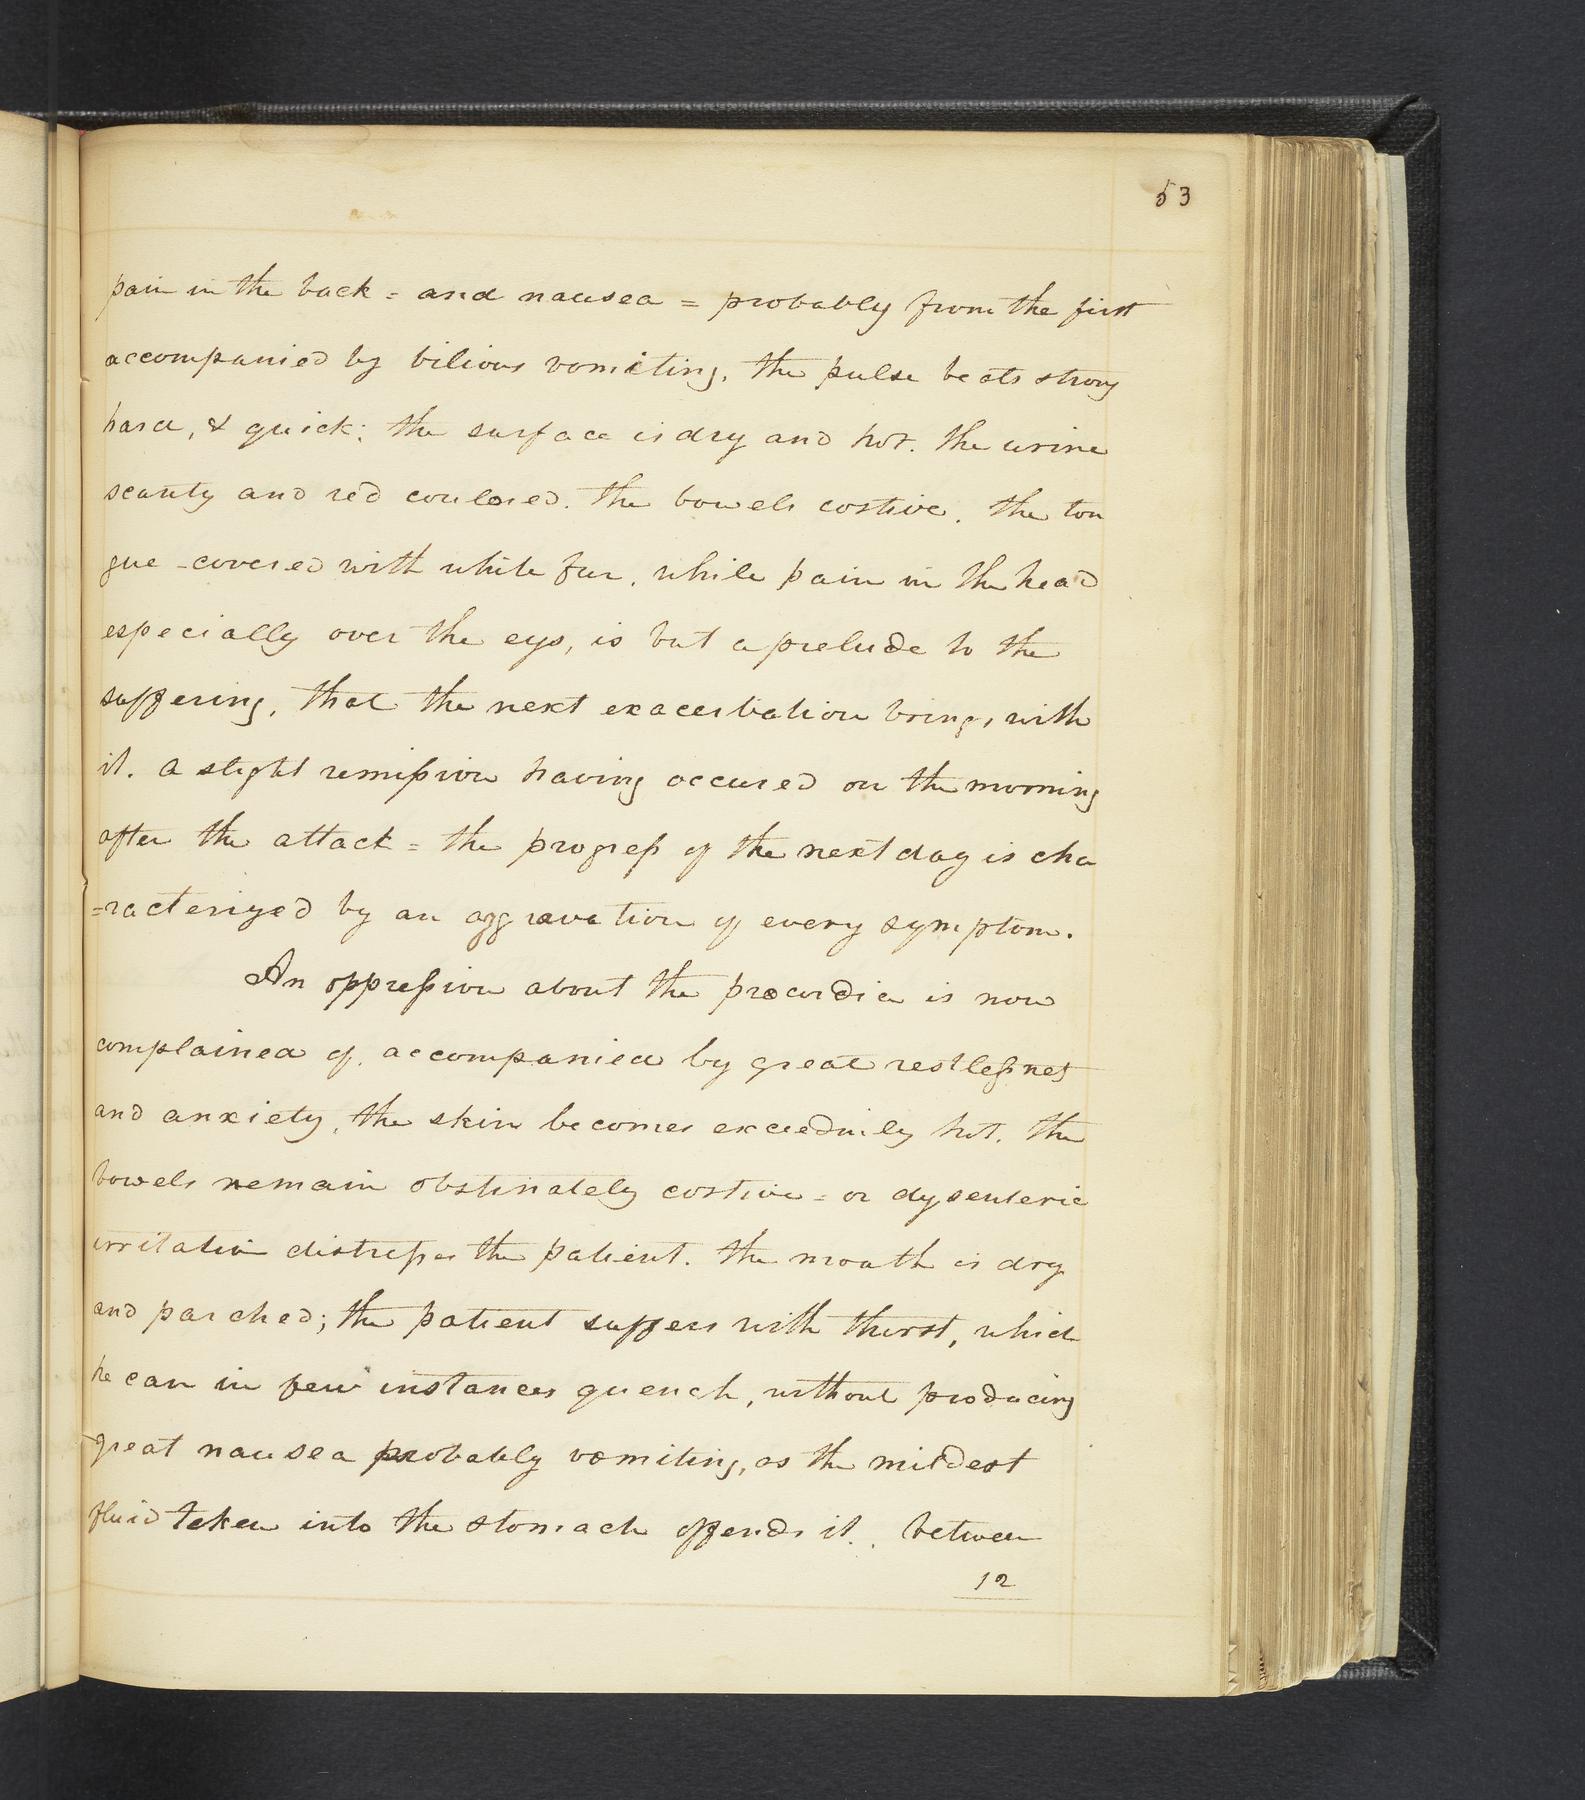 53
pain in the back = and nausea = probably from the first
accompanied by bilious vomiting, the pulse beats strong
hard, & quick: the surface is dry and hot. the urine
scanty and red coulored. the bowels costive. the ton
gue - covered with white fur, while pain in the head
especially over the eys, is but a prelude to the
suffering, that the next exacerbation brings with
it. a slight remission having occured on the morning
after the attack = the progress of the next day is cha
=racterized by an aggravation of every symptom.
An oppression about the præcordia is now
complained of, accompanied by great restlessness
and anxiety, the skin becomes exceedinily hot, the
bowels remain obstinately costive = or dysenteric
irritation distresses the patient. the mouth is dry
and parched; the patient suffers with thirst, which
he can in few instances quench, without producing
great nausea probably vomiting, as the mildest
fluid taken into the stomach offends it. . between
12